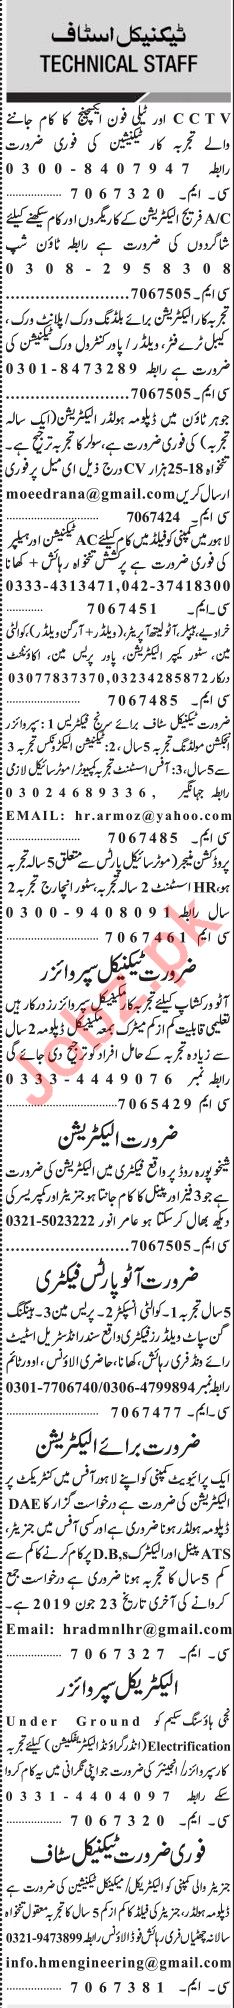 ٹیکنیکل اسٹاف
TECHNICAL STAFF
CCTV اور ٹیلی فون ایکسچینج کا کام جاننے
والے تجربہ کار ٹیکنیشین کی فوری ضرورت
رابطہ 0300-8407947
سی۔ایم۔ 7067320
A/C فریج الیکٹریشن کے کاریگروں اور کام سیکھنے کیلئے
شاگردوں کی ضرورت ہے رابطہ ٹاؤن شپ
0308-2958308
سی ایم۔7067505
تجربہ کار الیکٹریشن برائے بلڈنگ ورک/پلانٹ ورک،
کیبل ٹرے فٹر، ویلڈر/پاور کنٹرول ورک ٹیکنیشن کی
ضرورت ہے رابطہ 0301-8473289
سی ایم۔7067505
جوہر ٹاؤن میں ڈپلومہ ہولڈر الیکٹریشن (ایک سالہ
تجربہ) کی فوری ضرورت ہے، سولر کا تجربہ ترجیح ہے۔
تنخواہ 18-25 ہزار CV درج ذیل ای میل پر فوری
ارسال کریں moeedrana@gmail.com
سی ایم۔ 7067424
لاہور میں کمپنی کو فیلڈ میں کام کیلئے AC ٹیکنیشن اور ہیلپر
کی فوری ضرورت ہے پرکشش تنخواہ رہائش + کھانا
0333-4313471,042-37418300
سی۔ایم۔ 7067451
خرادیے، ہیلپر، آٹو لیتھ آپریٹر، (ویلڈر + آرگن ویلڈر)، کوالٹی
مین، سٹور کیپر الیکٹریشن، پاور پریس مین، اکاؤنٹنٹ
درکار 03077837370,03234285872
سی۔ایم۔ 7067485
ضرورت ٹیکنیکل سٹاف برائے سرنج فیکٹریس 1: سپروائزر
انجکشن مولڈنگ تجربہ 5 سال، 2: ٹیکنیشن الیکٹرونکس تجربہ 3
سے 5 سال، 3: آفس اسسٹنٹ تجربہ کمپیوٹر/موٹر سائیکل لازمی
رابطہ جہانگیر 03024689336,
EMAIL: hr.armoz@yahoo.com
سی۔ایم۔ 7067485
پروڈکشن منیجر (موٹر سائیکل پارٹس سے متعلق 5 سالہ تجربہ
ہو، HR اسسٹنٹ 2 سالہ تجربہ، سٹور انچارج تجربہ 2
سال رابطہ 0300-9408091
سی ایم۔ 7067461
ضرورت ٹیکنیکل سپروائزر
آٹو ورکشاپ کیلئے تجربہ کار ٹیکنیکل سپروائزرز درکار ہیں
تعلیمی قابلیت کم از کم میٹرک بمعہ مکینیکل ڈپلومہ 2 سال
سے زیادہ تجربہ کے حامل افراد کو ترجیح دی جائے گی
رابطہ نمبر 0333-4449076
سی ایم 7065429
ضرورت الیکٹریشن
شیخوپورہ روڈ پر واقع فیکٹری میں الیکٹریشن کی ضرورت
ہے جو 3 فیز اور پینل کا کام جانتا ہو جنریٹر اور کمپریسر کی
دیکھ بھال کر سکتا ہو عامر انور 0321-5023222
سی ایم۔7067505
ضرورت آٹو پارٹس فیکٹری
5 سال تجربہ 1۔ کوالٹی انسپکٹر 2۔ پریس مین 3۔ ہینگنگ
گن سپاٹ ویلڈرز فیکٹری واقع سندر انڈسٹریل اسٹیٹ
رائے ونڈ فری رہائش، کھانا، حاضری الاؤنس، اوور ٹائم
رابطہ نمبر 0301-7706740/0306-4799894
سی۔ایم۔ 7067477
ضرورت برائے الیکٹریشن
ایک پرائیویٹ کمپنی کو اپنے لاہور آفس میں کنٹریکٹ پر
الیکٹریشن کی ضرورت ہے درخواست گزار کا DAE
ڈپلومہ ہولڈر ہونا ضروری ہے اور کسی آفس میں جنریٹر،
ATS پینل اور الیکٹرک D.B,s پر کام کرنے کا کم سے
کم 5 سال کا تجربہ ہونا ضروری ہے درخواست جمع
کروانے کی آخری تاریخ 23 جون 2019 ہے۔
Email: hradmnlhr@gmail.com
سی۔ایم۔ 7067327
الیکٹریکل سپروائزر
نجی ہاؤسنگ سکیم کو Under Ground
Electrification (انڈر گراؤنڈ الیکٹریفکیشن) کیلئے تجربہ
کار سپروائزر/انجینئر کی ضرورت جو اپنی نگرانی میں یہ کام کروا
سکے رابطہ 0331-4404097
سی۔ایم۔ 7067320
فوری ضرورت ٹیکنیکل سٹاف
جنریٹر والی کمپنی کو الیکٹریکل/میکینیکل ٹیکنیشین کی ضرورت ہے
ڈپلومہ ہولڈر، جنریٹر کی فیلڈ کا کم از کم 5 سال کا تجربہ معقول تنخواہ
سالانہ چھٹیاں فری رہائش فوڈ الاؤنس رابطہ 0321-9473899
info.hmengineering@gmail.com
سی۔ایم۔ 7067381
Jobz.pk